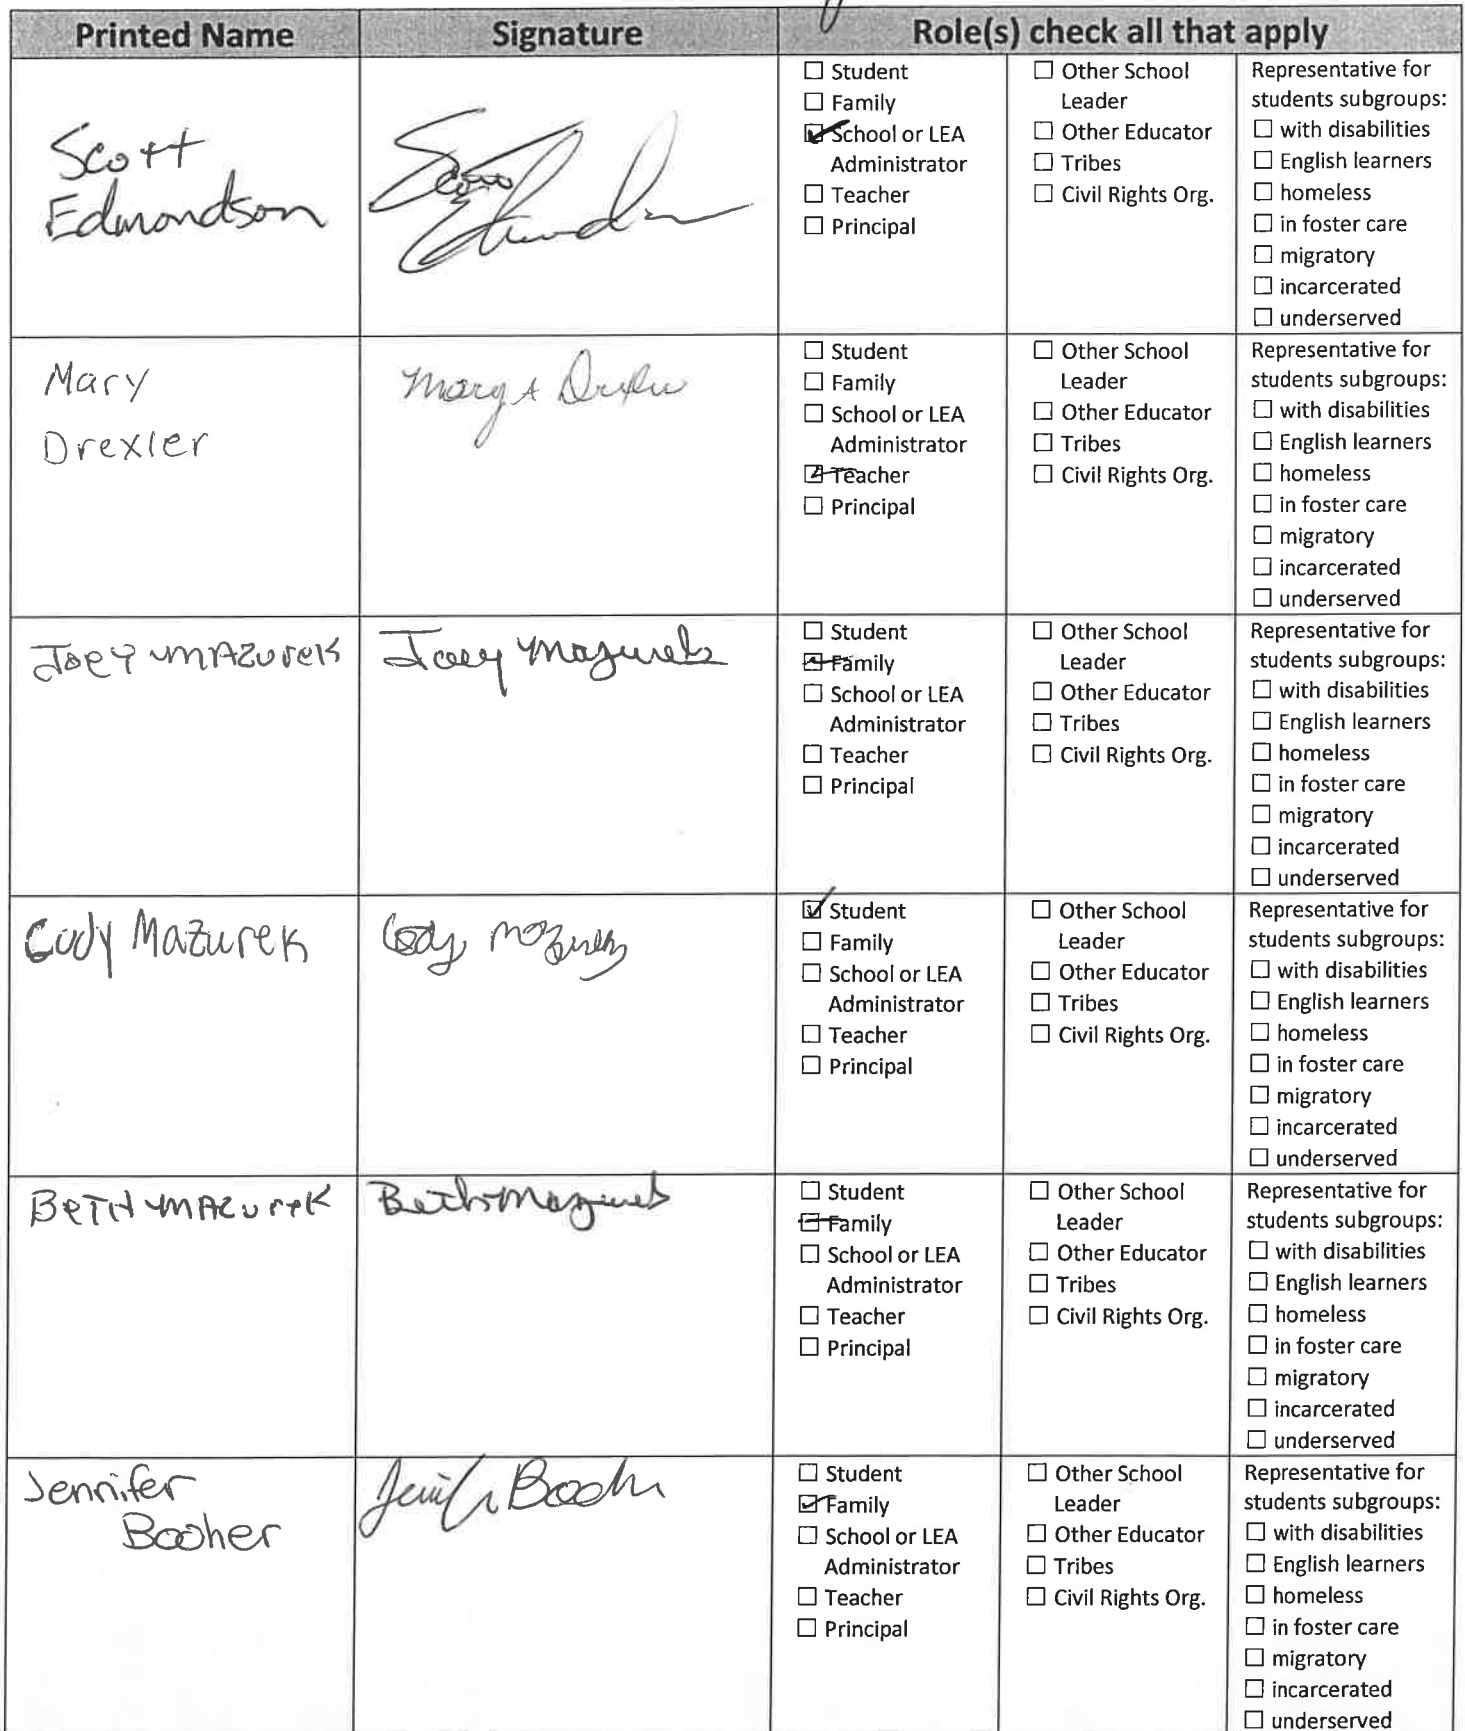 Printed Name Signature Role(s) check all that apply
Scott
Edmondson
Scott Edmondson
☐ Student
☐ Family
☑ School or LEA
Administrator
☐ Teacher
☐ Principal
☐ Other School
Leader
☐ Other Educator
☐ Tribes
☐ Civil Rights Org.
Representative for
students subgroups:
☐ with disabilities
☐ English learners
☐ homeless
☐ in foster care
☐ migratory
☐ incarcerated
☐ underserved
Mary
Drexler
Mary A Drexler
☐ Student
☐ Family
☐ School or LEA
Administrator
☑ Teacher
☐ Principal
☐ Other School
Leader
☐ Other Educator
☐ Tribes
☐ Civil Rights Org.
Representative for
students subgroups:
☐ with disabilities
☐ English learners
☐ homeless
☐ in foster care
☐ migratory
☐ incarcerated
☐ underserved
Joey MAzurek
Joey Mazurek
☐ Student
☑ Family
☐ School or LEA
Administrator
☐ Teacher
☐ Principal
☐ Other School
Leader
☐ Other Educator
☐ Tribes
☐ Civil Rights Org.
Representative for
students subgroups:
☐ with disabilities
☐ English learners
☐ homeless
☐ in foster care
☐ migratory
☐ incarcerated
☐ underserved
Cody Mazurek
Cody Mazurek
☑ Student
☐ Family
☐ School or LEA
Administrator
☐ Teacher
☐ Principal
☐ Other School
Leader
☐ Other Educator
☐ Tribes
☐ Civil Rights Org.
Representative for
students subgroups:
☐ with disabilities
☐ English learners
☐ homeless
☐ in foster care
☐ migratory
☐ incarcerated
☐ underserved
BeTH MAzurek
Beth Mazurek
☐ Student
☑ Family
☐ School or LEA
Administrator
☐ Teacher
☐ Principal
☐ Other School
Leader
☐ Other Educator
☐ Tribes
☐ Civil Rights Org.
Representative for
students subgroups:
☐ with disabilities
☐ English learners
☐ homeless
☐ in foster care
☐ migratory
☐ incarcerated
☐ underserved
Jennifer
Booher
Jennifer Booher
☐ Student
☑ Family
☐ School or LEA
Administrator
☐ Teacher
☐ Principal
☐ Other School
Leader
☐ Other Educator
☐ Tribes
☐ Civil Rights Org.
Representative for
students subgroups:
☐ with disabilities
☐ English learners
☐ homeless
☐ in foster care
☐ migratory
☐ incarcerated
☐ underserved